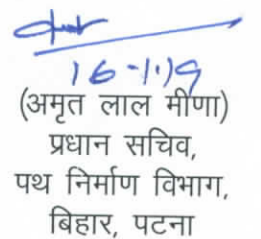 16-1-19
(अमृत लाल मीणा)
प्रधान सचिव,
पथ निर्माण विभाग,
बिहार, पटना